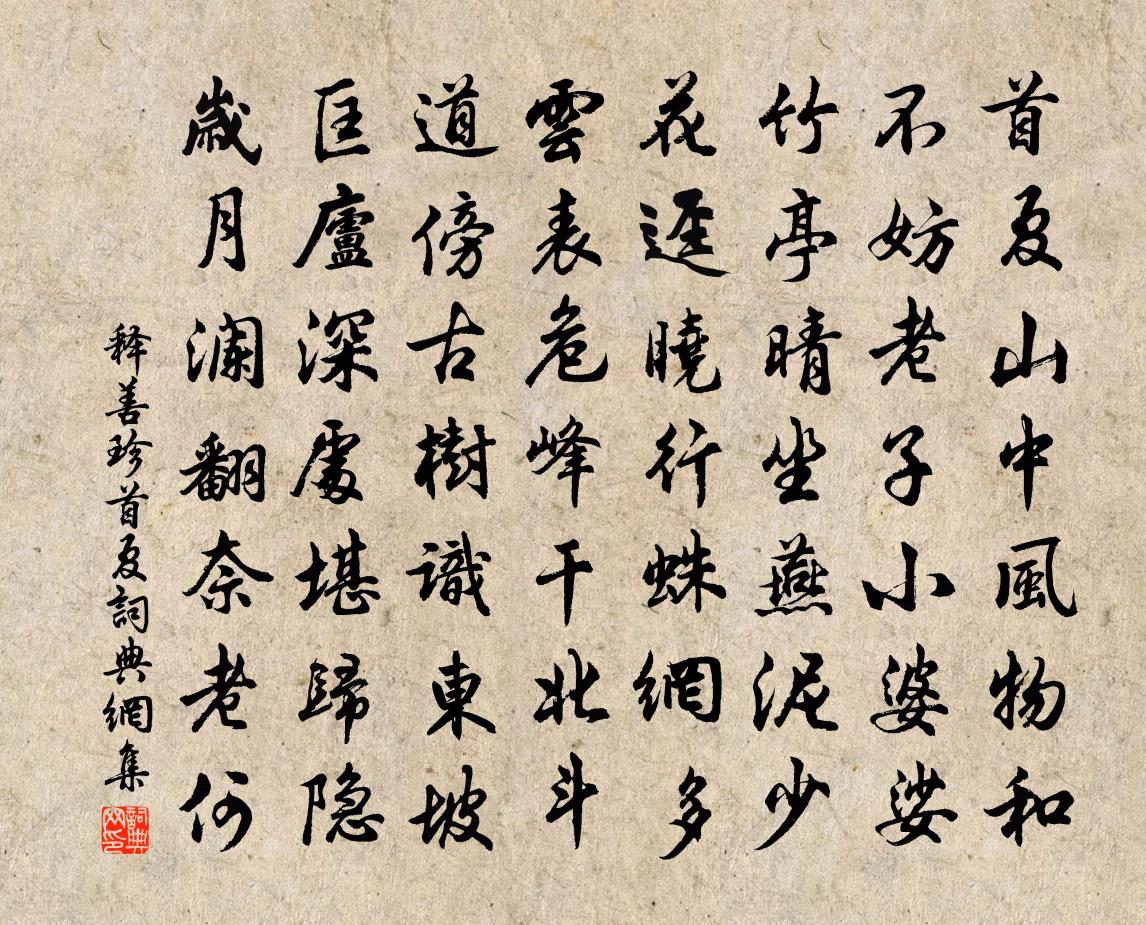 首夏山中風物和
不妨老子小婆娑
竹亭晴坐燕泥少
花逕曉行蛛網多
雲表危峰干北斗
道傍古樹識東坡
匡廬深處堪歸隐
歲月瀾翻奈老何
释善珍首夏詞典網集
詞典网印